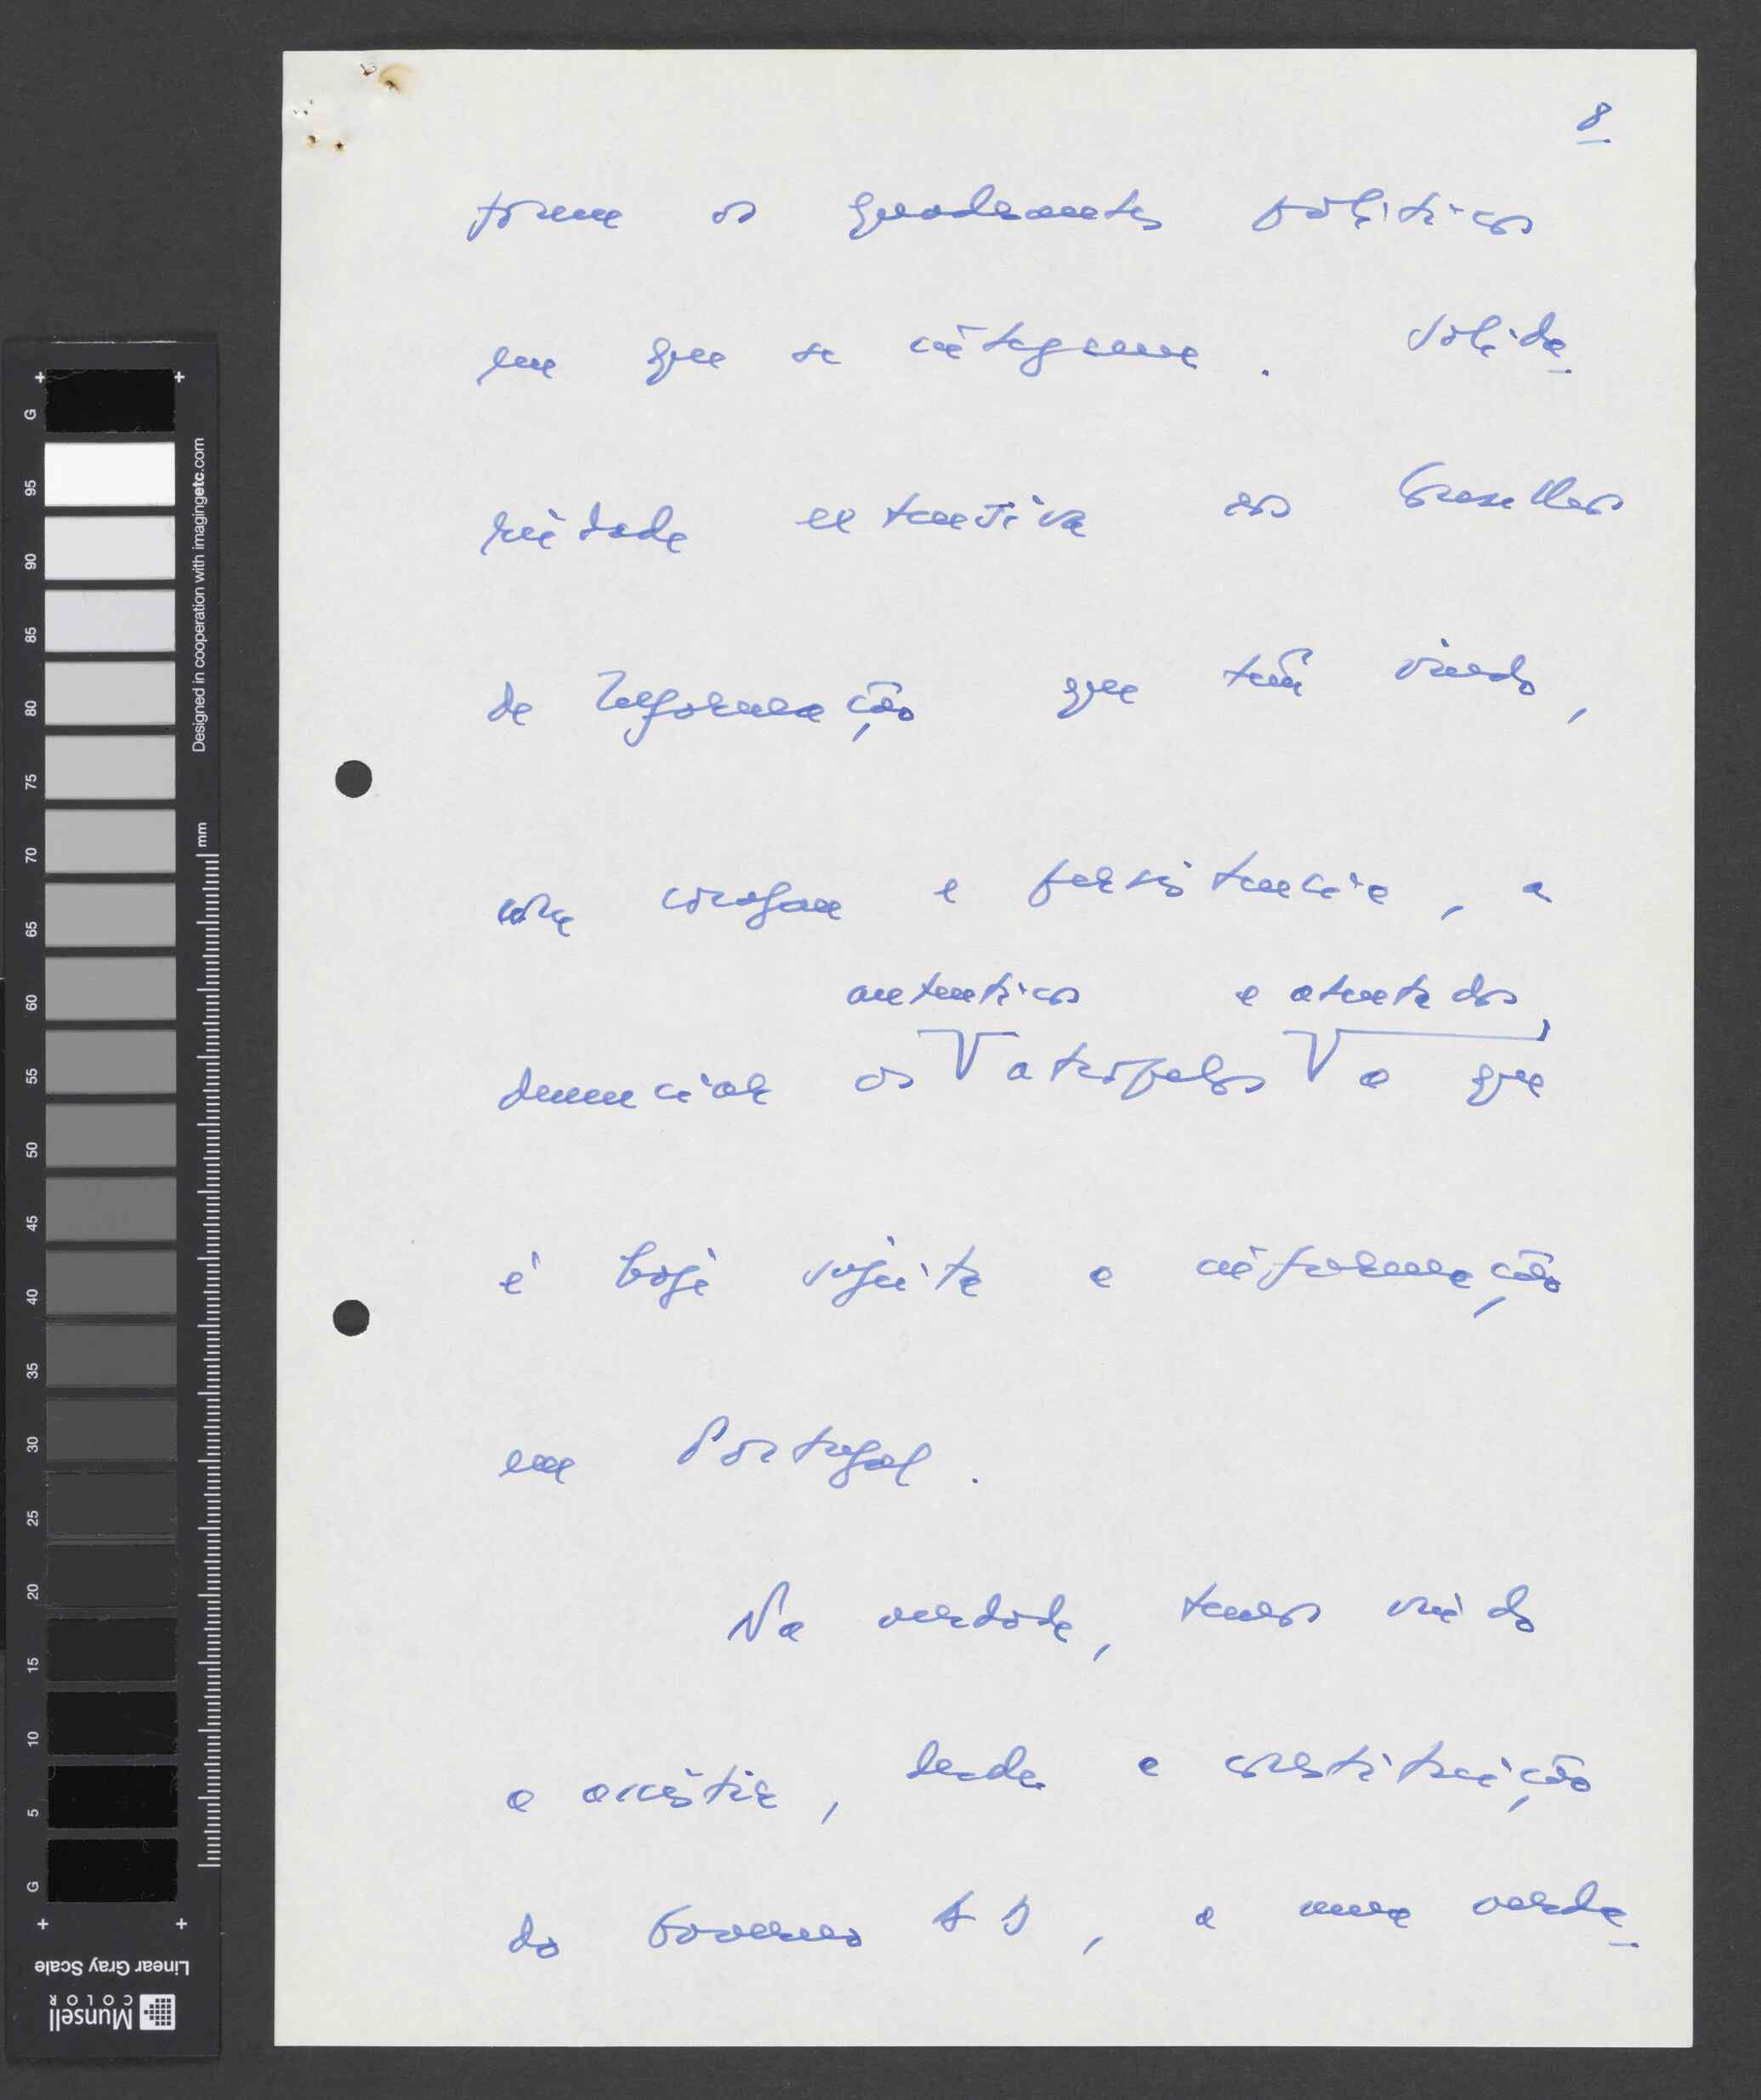 8
forem os quadrantes políticos
em que se integrem. Solida
riedade extensiva aos Conselhos
de Informação que têm vindo,
com coragem e persistência, a
autenticos e atentados,
denunciar os atropelos a que
é hoje sujeita a informação
em Portugal.
Na verdade, temos vindo
a assistir, desde a constituição
do Governo AD, a uma verda
Designed in cooperation with imagingetc.com
mm
G 95 90 85 80 75 70 65 60 55 50 45 40 35 30 25 20 15 10 5 G
Linear Gray Scale
Munsell
COLOR